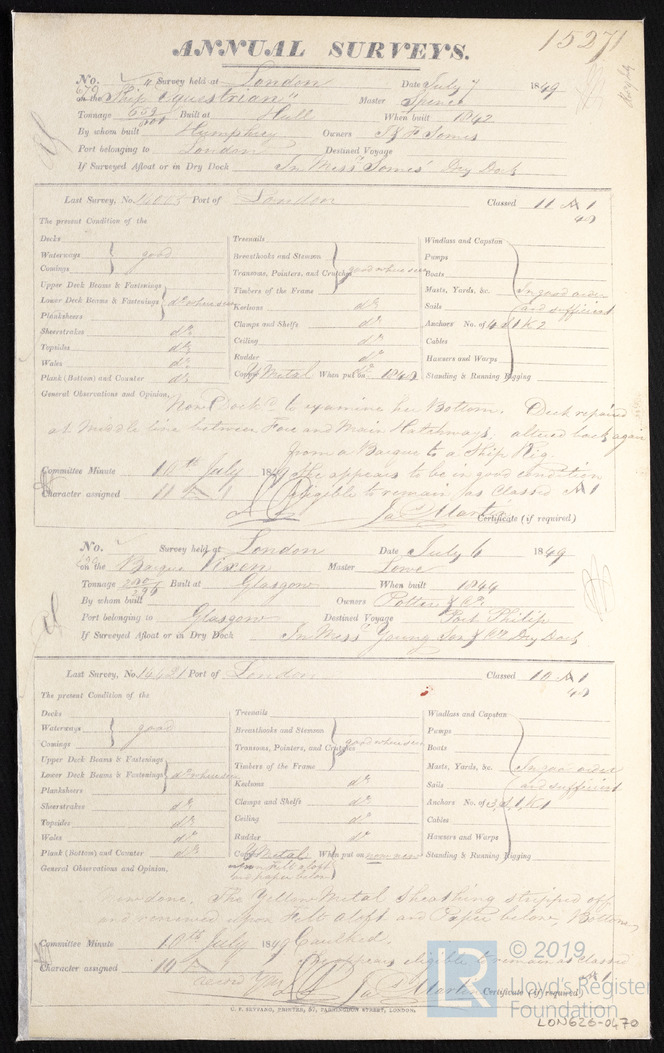 15271
ANNUAL SURVEYS.
No. 679 Survey held at London Date July 7 1849
on the Ship "Equestrian" Master Spence
Tonnage Built at Hull When built 1842
By whom built Humphrey Owners J & F Somes
Port belonging to London Destined Voyage
If Surveyed Afloat or in Dry Dock In Messrs Somes' Dry Dock
Last Survey, No. Port of London Classed 11 A 1
48
The present Condition of the
Decks Treenails Windlass and Capstan
Waterways good Breasthooks and Stemson Pumps
Comings Transoms, Pointers, and Crutches good where seen Boats
Upper Deck Beams & Fastenings Timbers of the Frame Masts, Yards, &c. In good order
Lower Deck Beams & Fastenings do where seen Keelsons do Sails and sufficient
Planksheers Clamps and Shelfs do Anchors No. of
Sheerstrakes do Ceiling do Cables
Topsides do Rudder do Hawsers and Warps
Wales do Copper Y Metal When put on 1848 Standing & Running Rigging
Plank (Bottom) and Counter do
General Observations and Opinion, Now Dockd to examine her Bottom. Deck repaired
at Middle line between Fore and Main Hatchways, altered back again
from a Barque to a Ship Rig.
Committee Minute 10th July 1849 She appears to be in good condition
Character assigned 11 A 1 eligible to remain as Classed A 1
Jas Martin Certificate (if required)
No. Survey held at London Date July 6 1849
on the Barque Vixen Master Lowe
Tonnage Built at Glasgow When built 1844
By whom built Owners Potter & Co
Port belonging to Glasgow Destined Voyage Port Philip
If Surveyed Afloat or in Dry Dock In Messrs Young Son & Co Dry Dock
Last Survey, No. 14421 Port of London Classed 10 A 1
48
The present Condition of the
Decks Treenails Windlass and Capstan
Waterways good Breasthooks and Stemson Pumps
Comings Transoms, Pointers, and Crutches good where seen Boats
Upper Deck Beams & Fastenings Timbers of the Frame Masts, Yards, &c. In good order
Lower Deck Beams & Fastenings do where seen Keelsons do Sails and sufficient
Planksheers Clamps and Shelfs do Anchors No. of
Sheerstrakes do Ceiling do Cables
Topsides do Rudder do Hawsers and Warps
Wales do Copper Y Metal When put on now new Standing & Running Rigging
Plank (Bottom) and Counter do on Felt aloft
and paper below
General Observations and Opinion,
Now done. The Yellow Metal Sheathing stripped off
and renewed upon Felt aloft and Paper below, Bottom
Committee Minute 10th July 1849 Caulked.
Character assigned 10 A 1 appears eligible to remain as classed
A 1
Jas Martin Certificate (if required)
C. F. SEYFANG, PRINTER, 57, FARRINGDON STREET, LONDON.
LR © 2019
Lloyd's Register
Foundation
LON626-0470